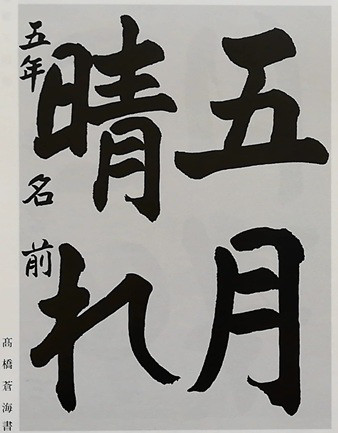 五月
晴れ
五年 名前
髙橋蒼海書